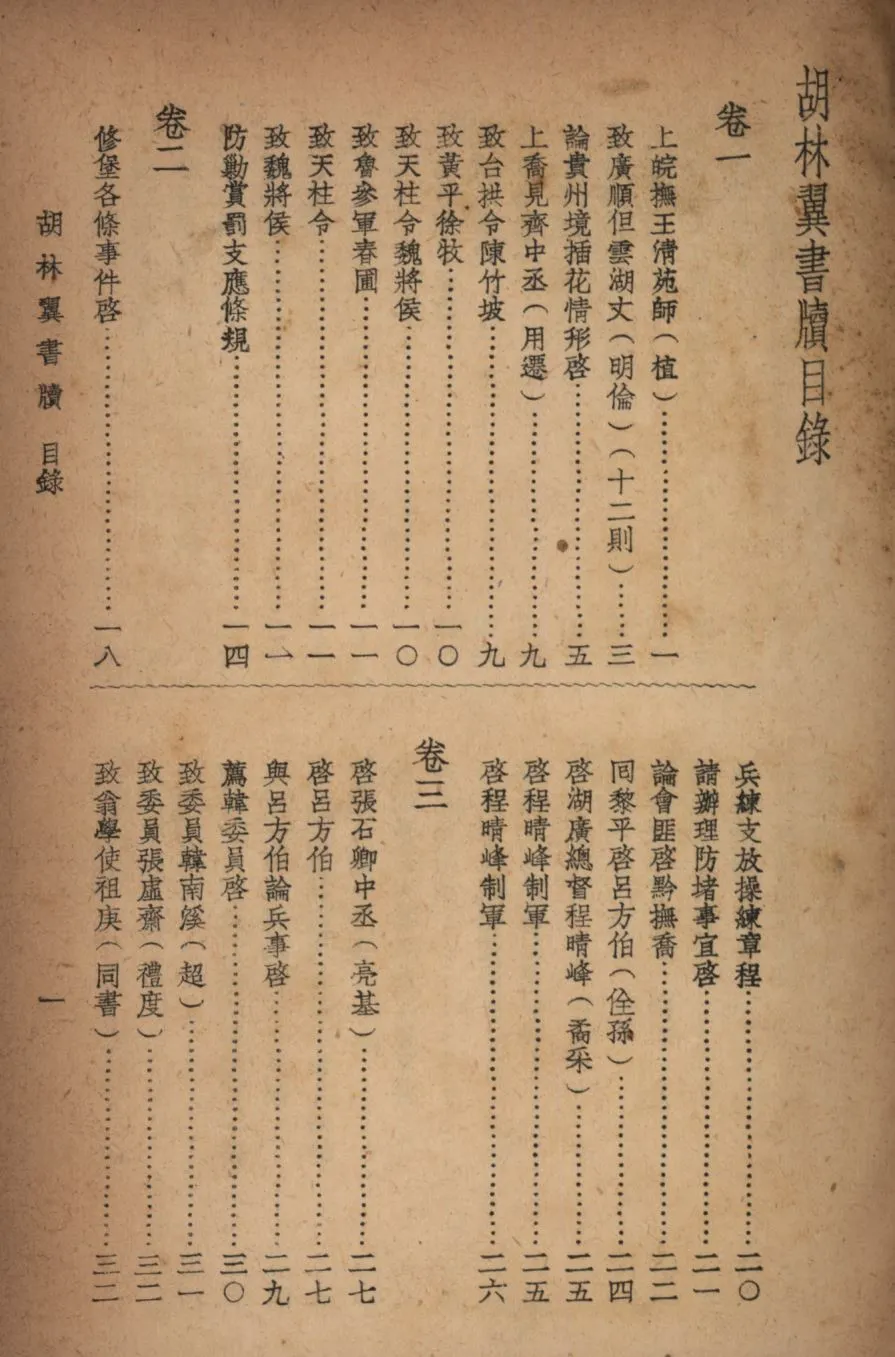 胡林翼書牘目錄
卷一
上皖撫王淸苑師(植)……一
致廣順但雲湖丈(明倫)(十二則)……三
論貴州境插花情形啓……五
上喬見齊中丞(用遷)……九
致台拱令陳竹坡……九
致黃平徐牧……一〇
致天柱令魏將侯……一〇
致魯參軍春圃……一一
致天柱令……一一
致魏將侯……一一
防勦賞罰支應條規……一四
卷二
修堡各條事件啓……一八
兵練支放操練章程……二〇
請辦理防堵事宜啓……二一
論會匪啓黔撫喬……二二
囘黎平啓呂方伯(佺孫)……二四
啓湖廣總督程晴峰(矞采)……二五
啓程晴峰制軍……二五
啓程晴峰制軍……二六
卷三
啓張石卿中丞(亮基)……二七
啓呂方伯……二七
與呂方伯論兵事啓……二九
薦韓委員啓……三〇
致委員韓南溪(超)……三一
致委員張虛齋(禮度)……三二
致翁學使祖庚(同書)……三二
胡林翼書牘 目錄
一